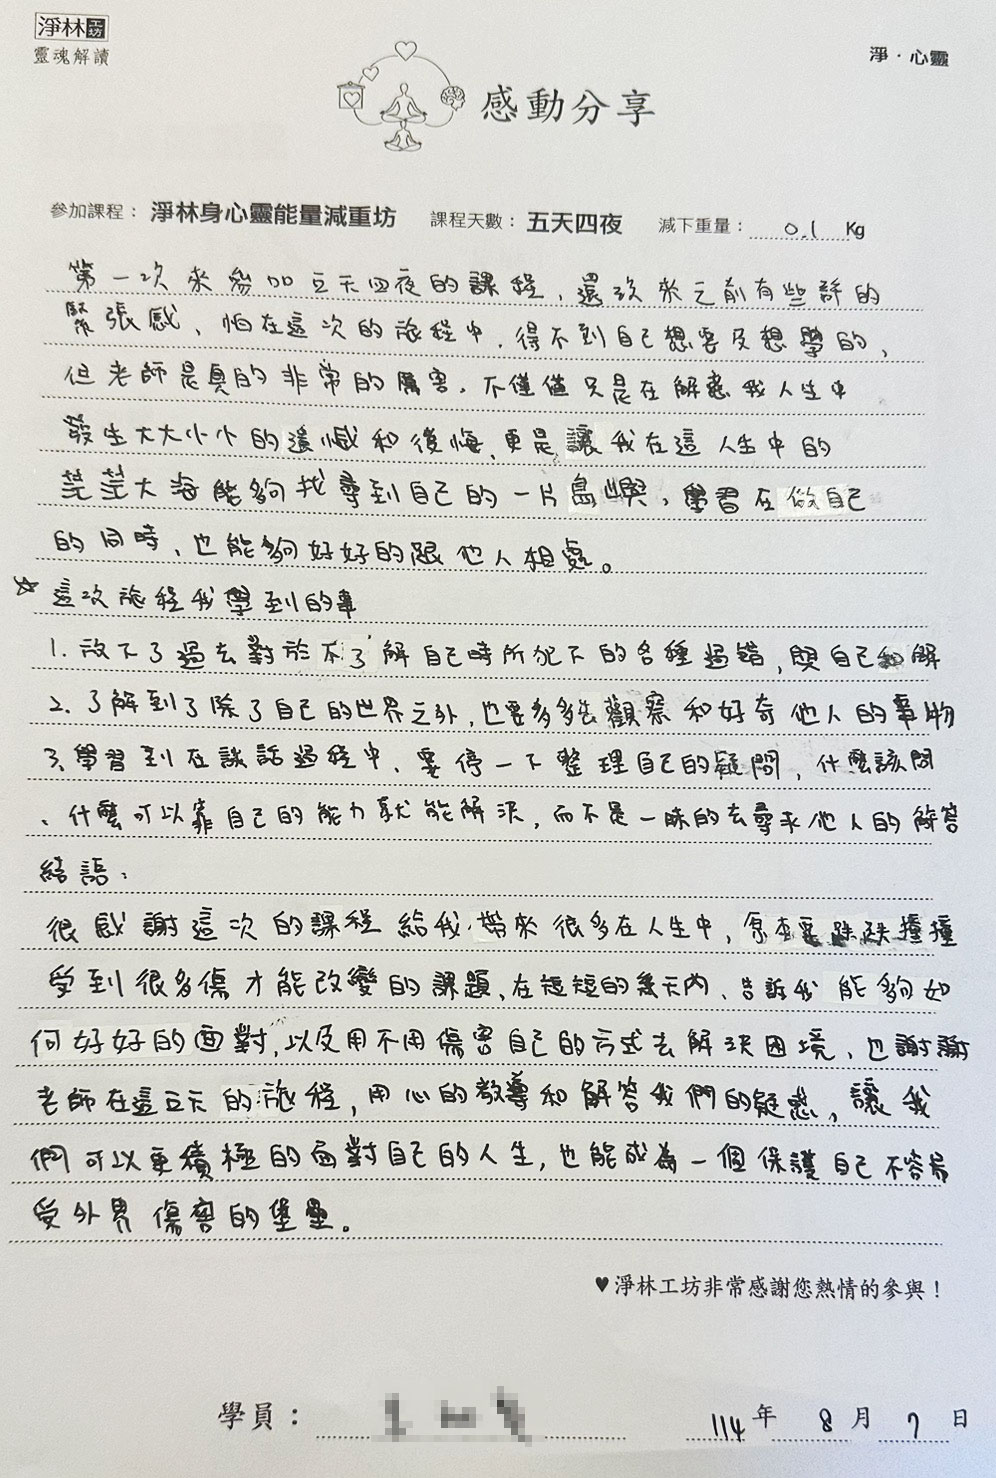 淨林工坊
靈魂解讀
淨．心靈
感動分享
參加課程： 淨林身心靈能量減重坊 課程天數： 五天四夜 減下重量： 0.1 Kg
第一次來參加五天四夜的課程，還沒來之前有些許的
緊張感、怕在這次的旅程中，得不到自己想要及想學的，
但老師是真的非常的厲害，不僅僅只是在解惑我人生中
發生大大小小的遺憾和後悔，更是讓我在這人生中的
茫茫大海能夠找尋到自己的一片島嶼，學習在做自己
的同時、也能夠好好的跟他人相處。
☆這次旅程我學到的事
1. 放下了過去對於不了解自己時所犯下的各種過錯，與自己和解
2. 了解到了除了自己的世界之外，也要多多去觀察和好奇他人的事物
3、學習到在談話過程中、要停一下整理自己的疑問，什麼該問
、什麼可以靠自己的能力就能解決，而不是一昧的去尋求他人的解答
結語：
很感謝這次的課程給我帶來很多在人生中，原本要跌跌撞撞
受到很多傷才能改變的課題，在短短的幾天內、告訴我能夠如
何好好的面對，以及用不用傷害自己的方式去解決困境、也謝謝
老師在這五天的旅程，用心的教導和解答我們的疑惑，讓我
們可以更積極的面對自己的人生，也能成為一個保護自己不容易
受外界傷害的堡壘。
♥淨林工坊非常感謝您熱情的參與！
學員： 114 年 8 月 7 日